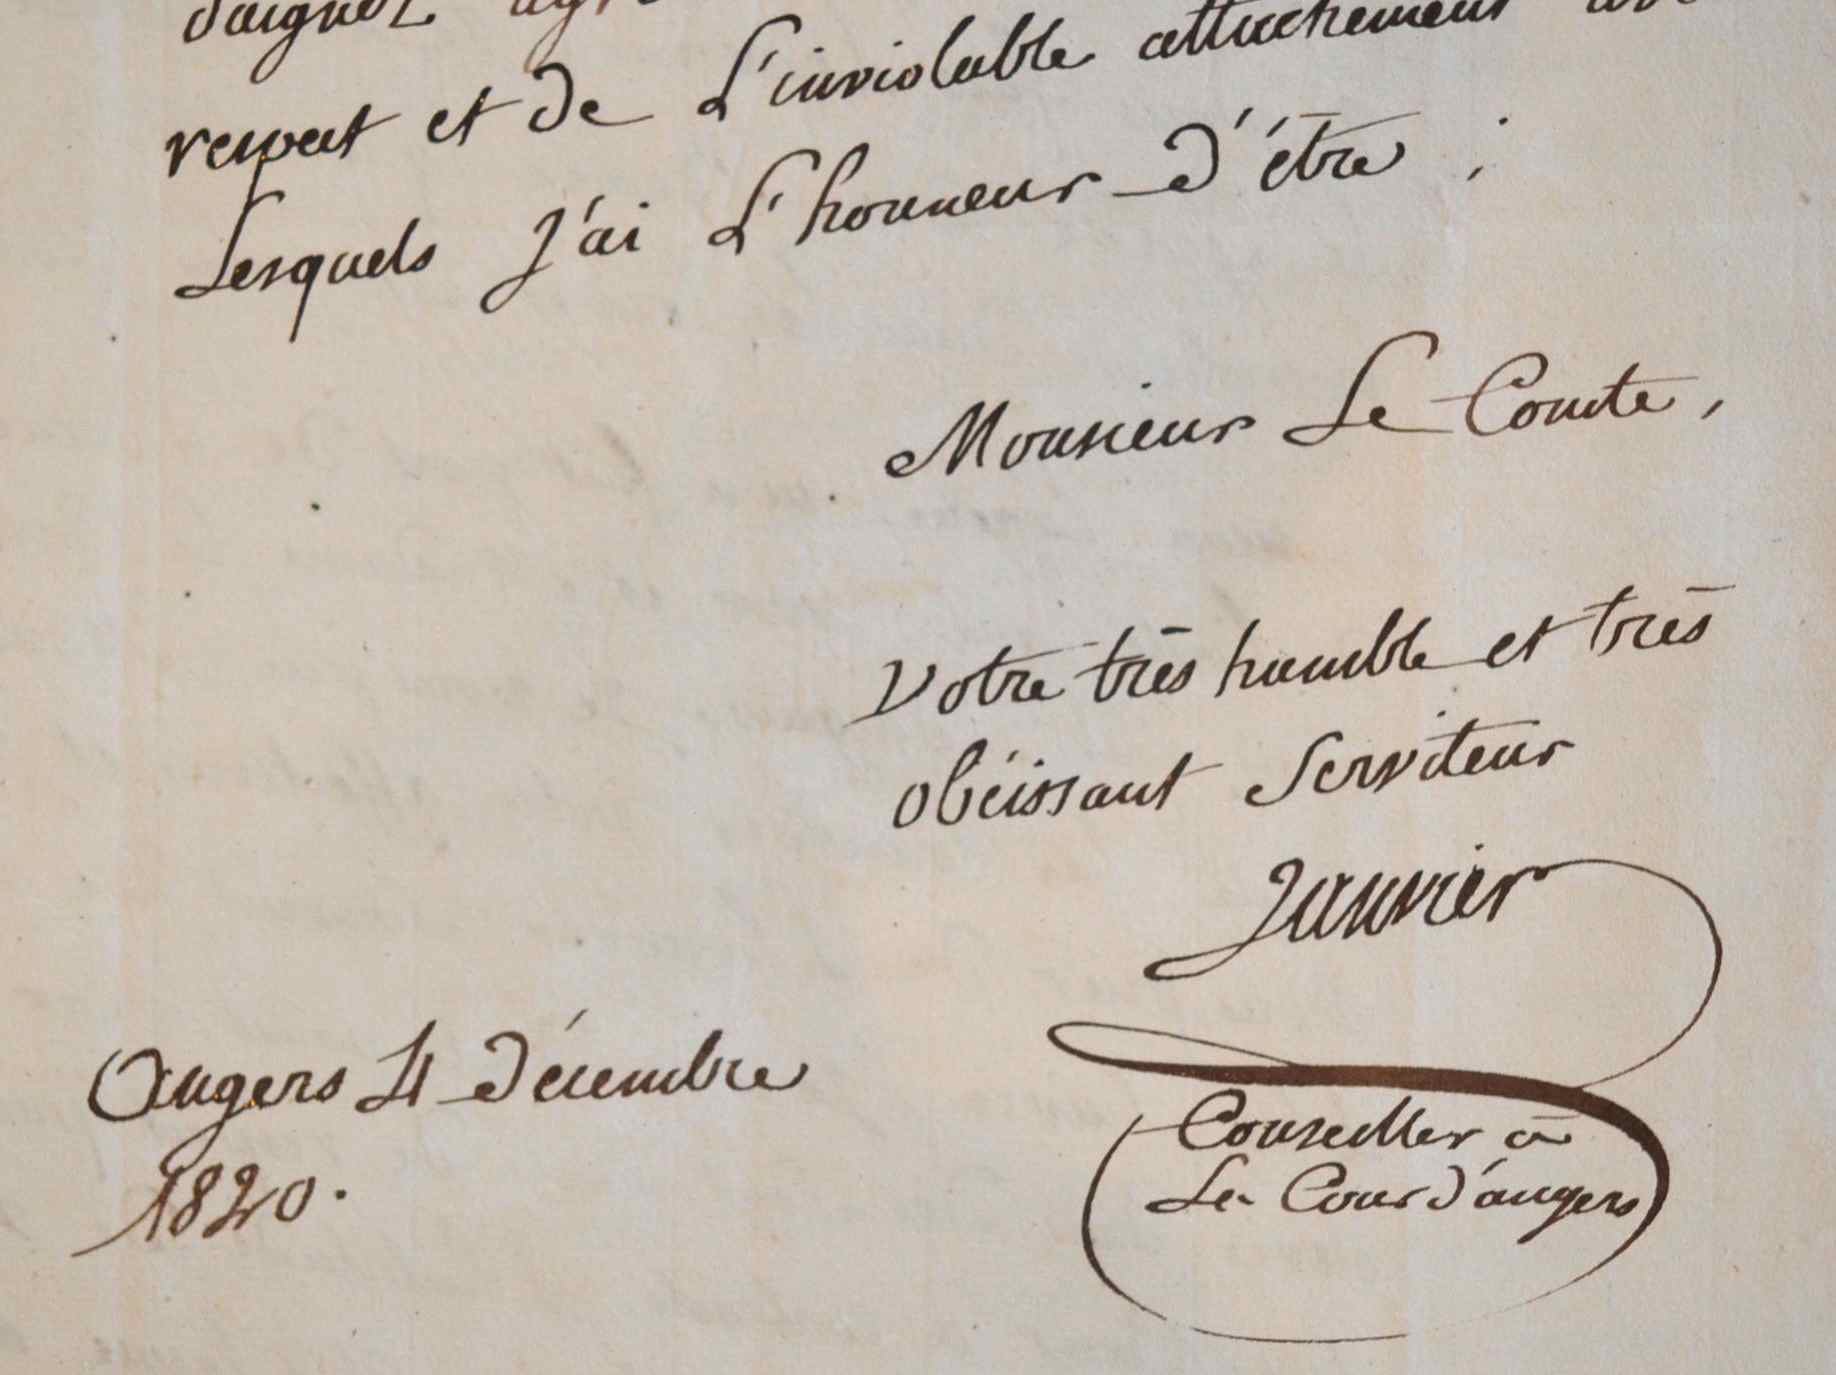 daignez
respect et de L'inviolable attachement
Lesquels J'ai L'honneur d'être ;
Monsieur Le Comte,
Votre très humble et très
obéissant Serviteur
Janvier
Conseiller à
La Cour d'angers
Angers 4 décembre
1820.